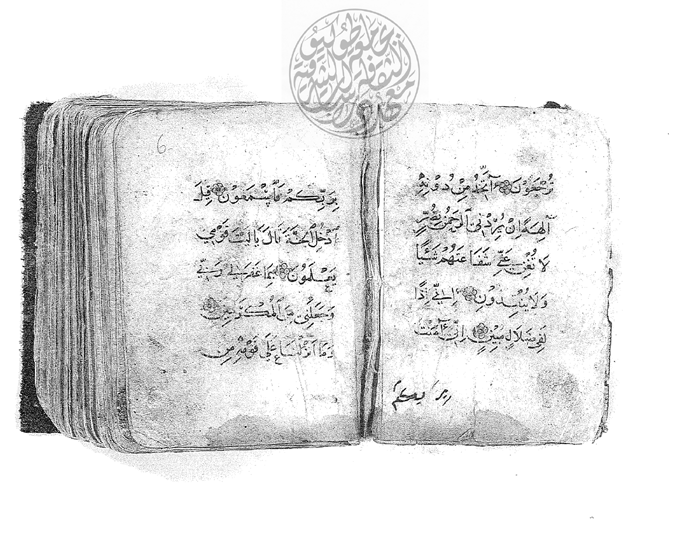 تُرْجَعُونَ ءَأَتَّخِذُ مِنْ دُونِهِ
آلِهَةً إِنْ يُرِدْنِ الرَّحْمٰنُ بِضُرٍّ
لَا تُغْنِ عَنِّي شَفَاعَتُهُمْ شَيْئًا
وَلَا يُنْقِذُونِ إِنِّي إِذًا
لَفِي ضَلَالٍ مُبِينٍ إِنِّي آمَنْتُ
بربكم
6
بِرَبِّكُمْ فَاسْمَعُونِ قِيلَ
ادْخُلِ الْجَنَّةَ قَالَ يَا لَيْتَ قَوْمِي
يَعْلَمُونَ بِمَا غَفَرَ لِي رَبِّي
وَجَعَلَنِي مِنَ الْمُكْرَمِينَ
وَمَا أَنْزَلْنَا عَلَى قَوْمِهِ مِنْ